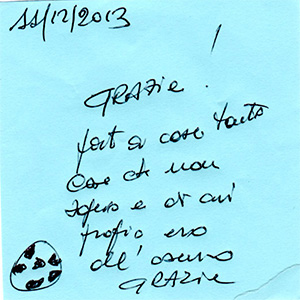 11/12/2013
GRAZIE!
cose tante
Cose che non
sapevo e di cui
proprio ero
all'oscuro
GRAZIE